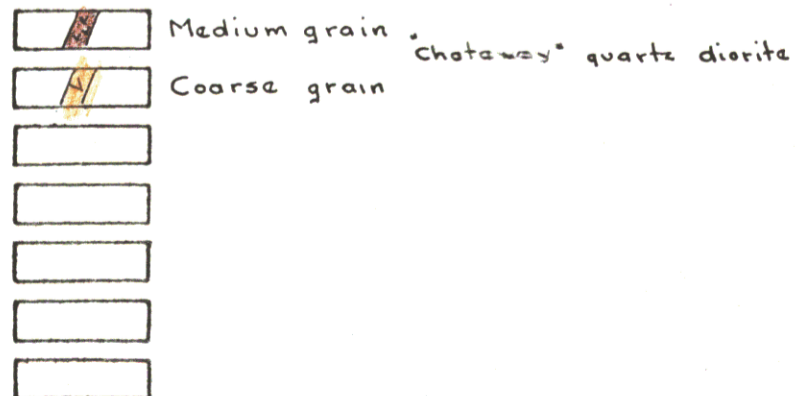 Medium grain
"Chataway" quartz diorite
Coarse grain